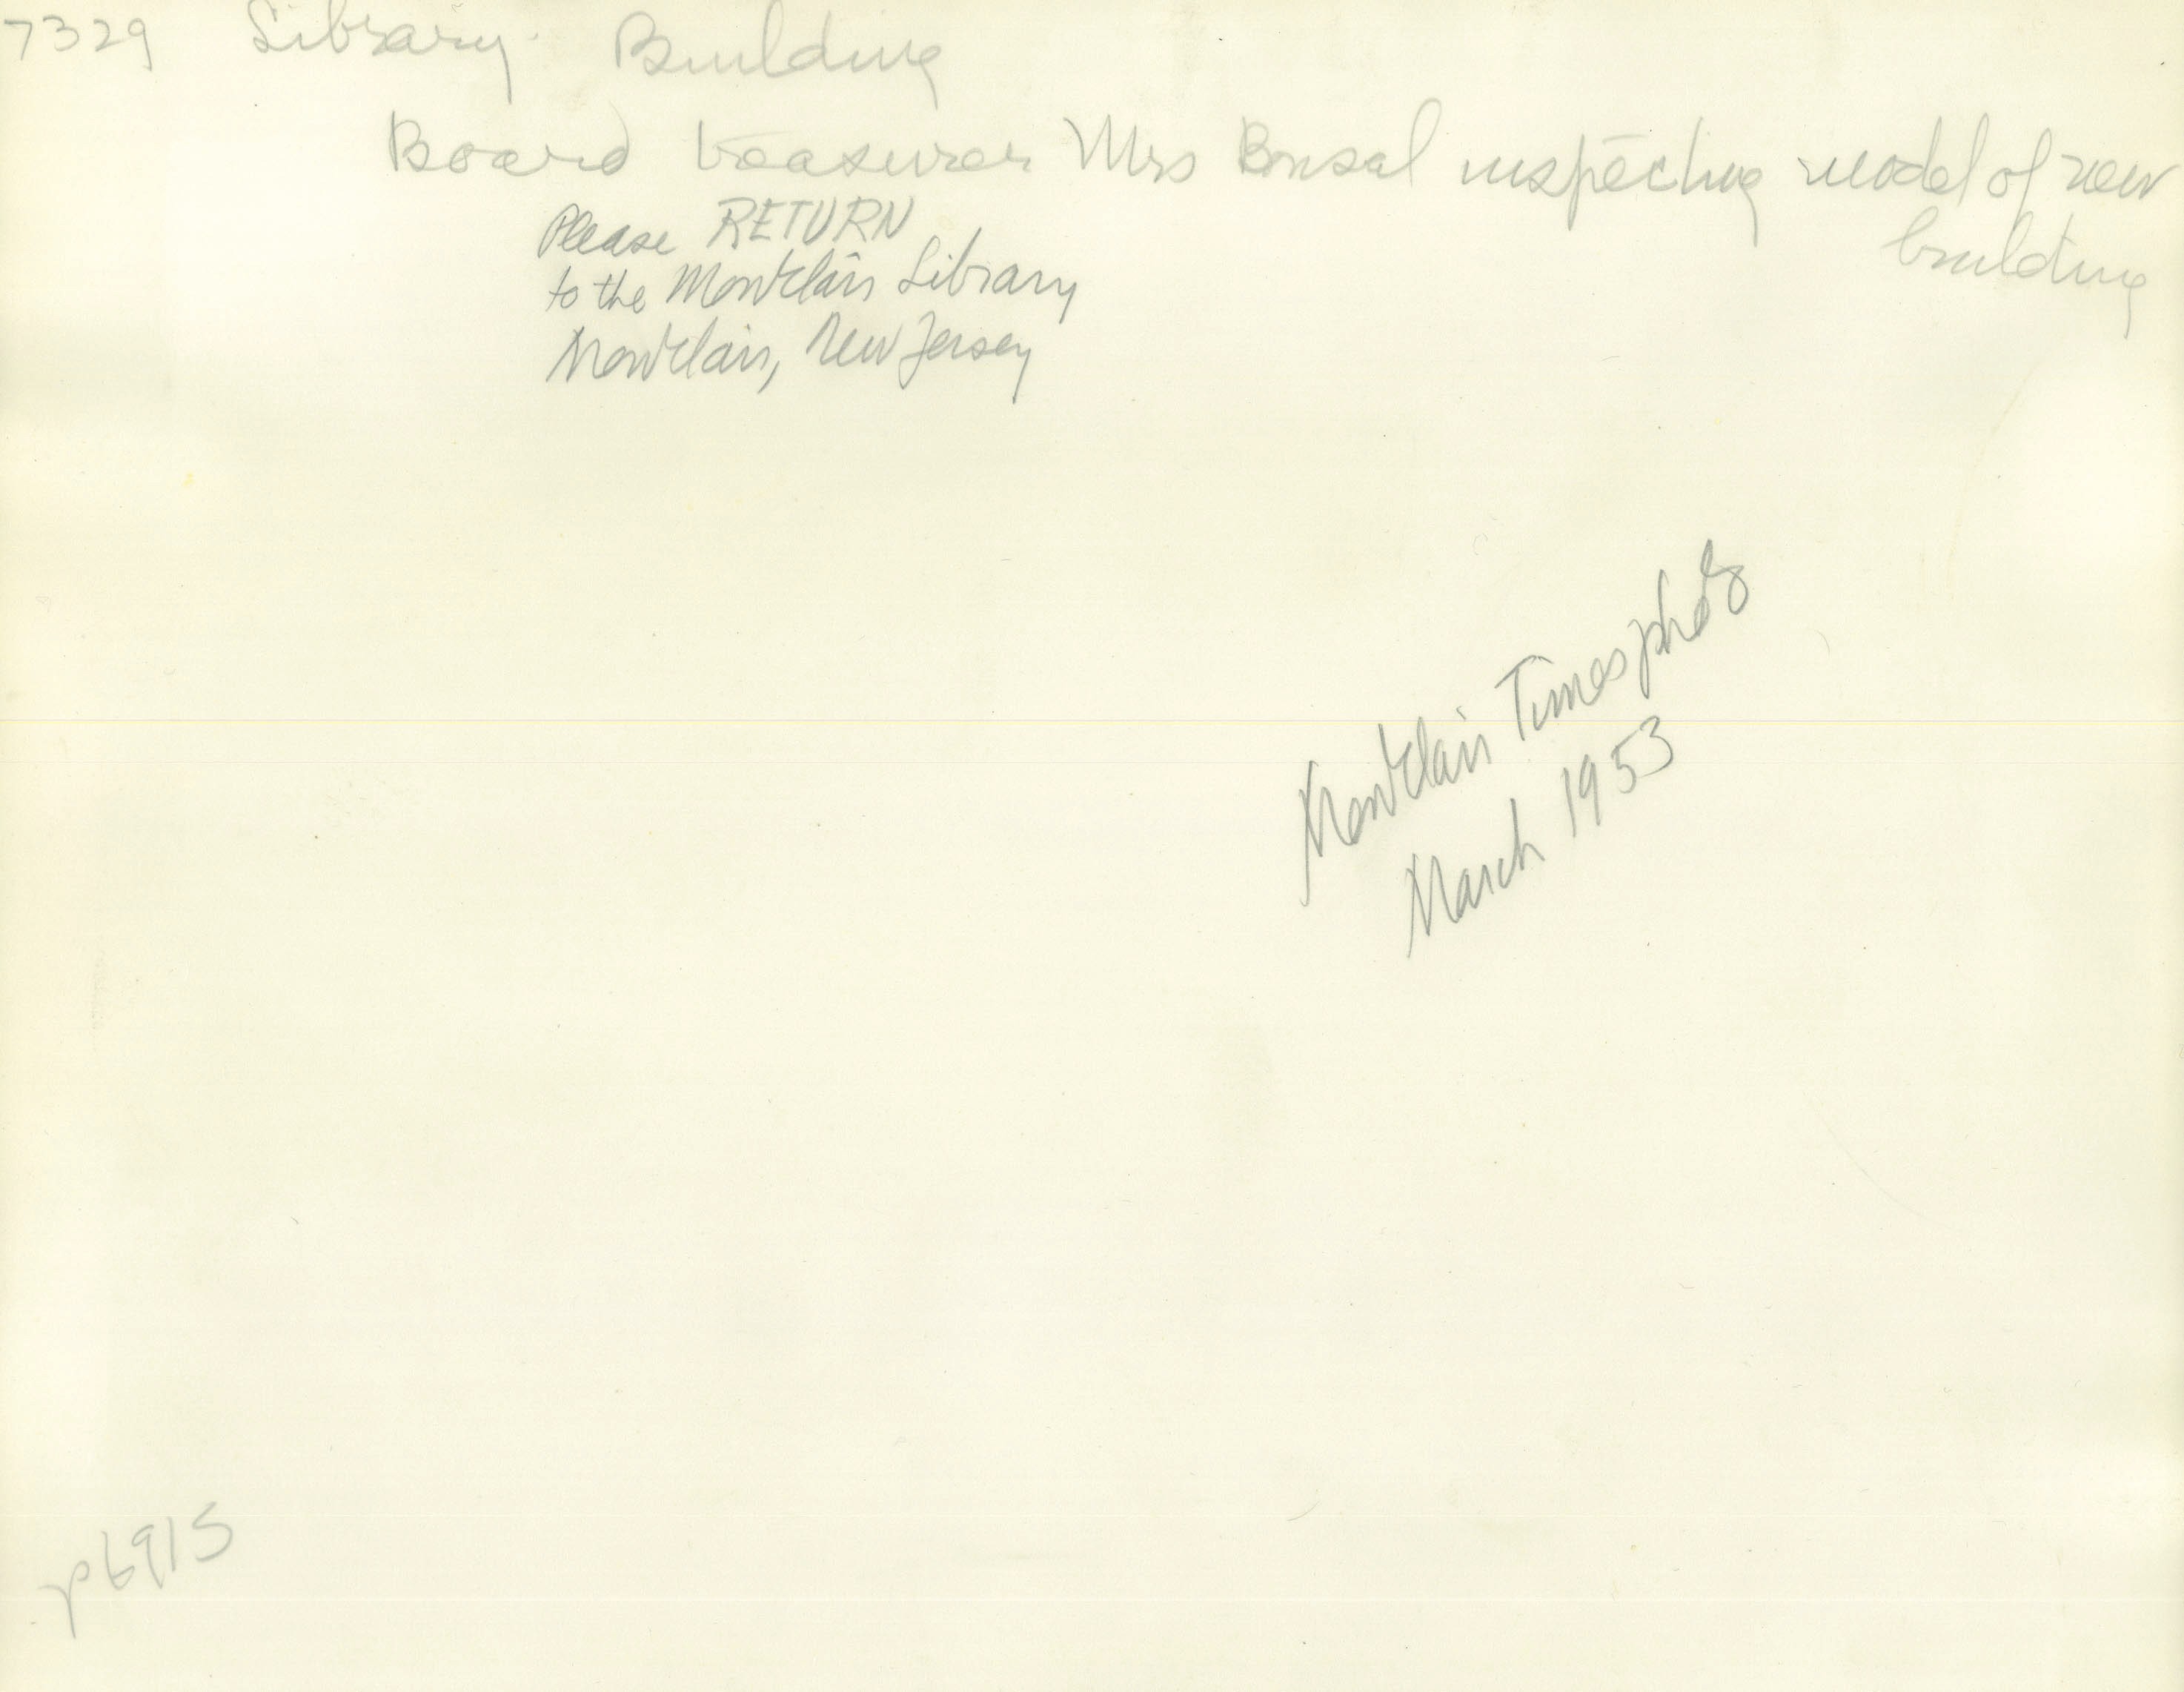 7329 Library. Building
Board treasurer Mrs Bonsal inspecting model of new
building
Please RETURN
to the Montclair Library
Montclair, New Jersey
Montclair Times photo
March 1953
p6915